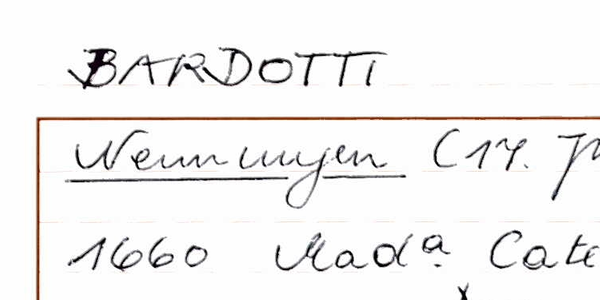 BARDOTTI
Nennungen (17. J
1660 Mad.a Cate